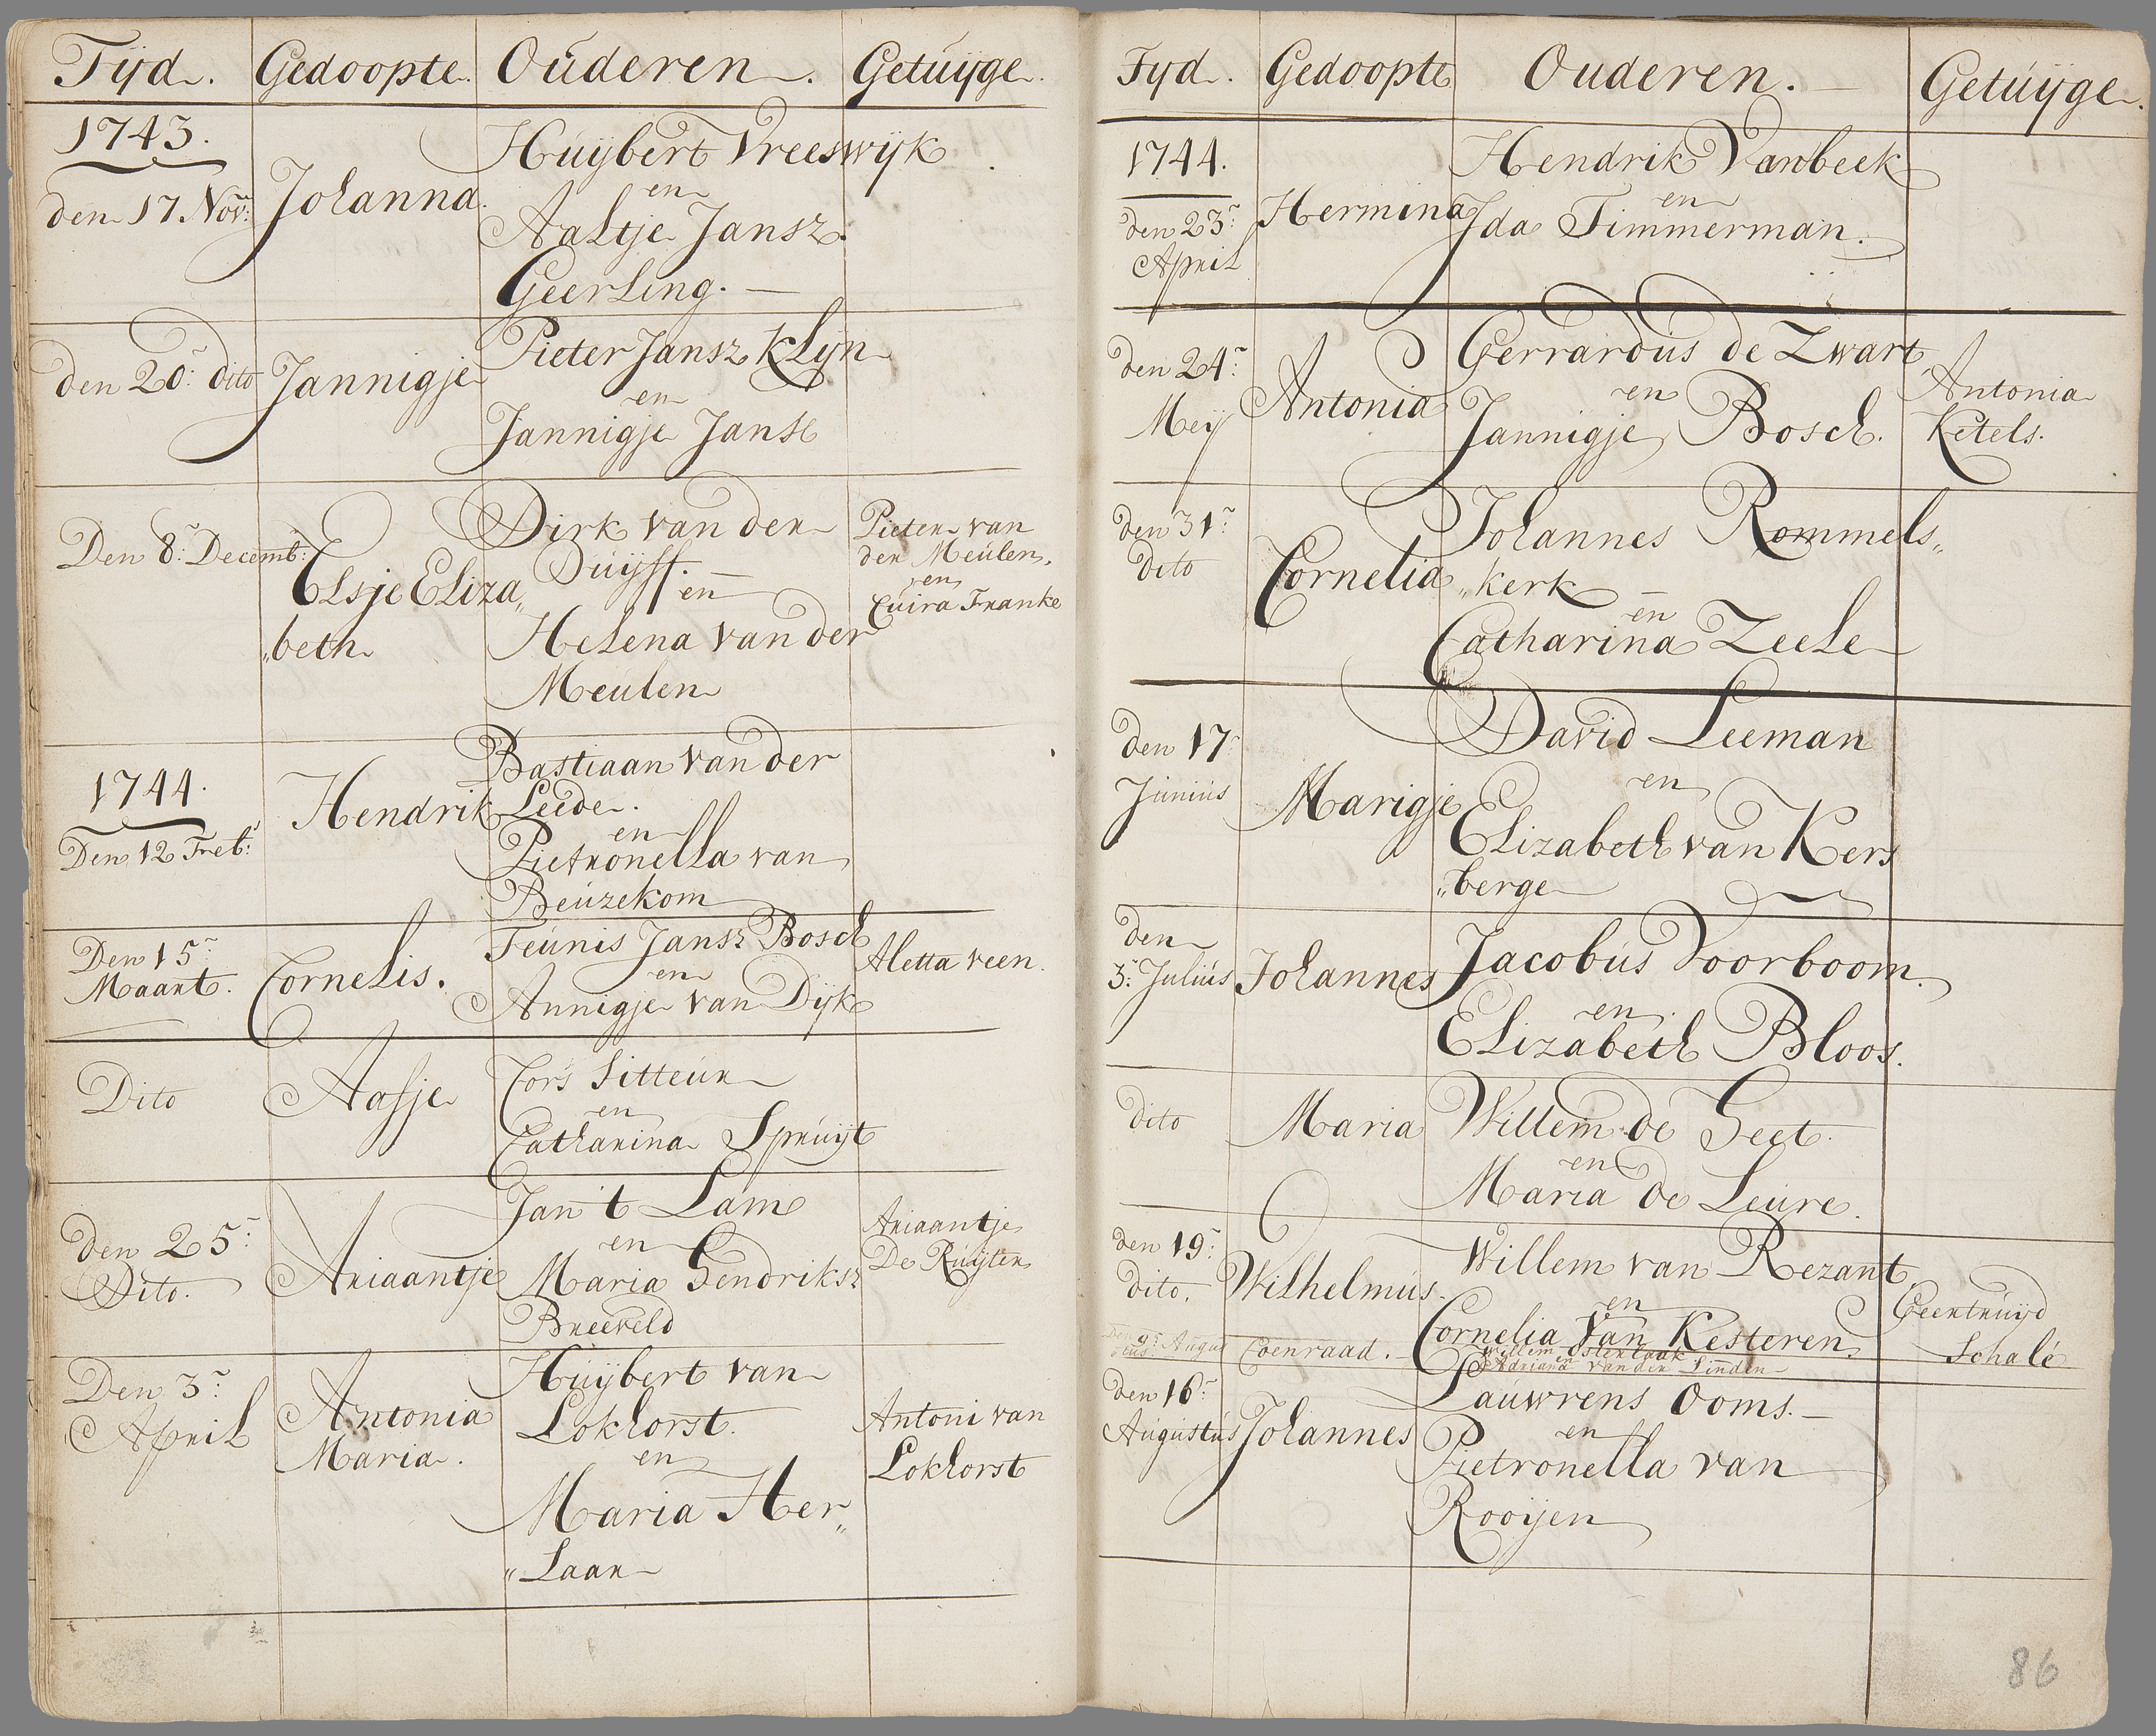 Tijd. Gedoopte. Ouderen. Getuijge.
1743.
den 17 Nov: Johanna. Huijbert Vreeswijk
en
Aaltje Jansz.
Geerling.
den 20: dito Jannigje Pieter Jansz Klijn
en
Jannigje Janse
Den 8: Decemb: Elsje Eliza„ Dirk van der Pieter van
Duijff. der Meulen,
en en
„beth Helena van der Cuira Franke
Meulen
1744. Hendrik Bastiaan van der
Den 12 Freb: Leede.
en
Pietronella van
Beuzekom
Den 15: Cornelis. Teunis Jansz Bosch Aletta veen.
Maart. en
Annigje van Dijk
Dito Aafje Cors Sitteur
en
Catharina Spruijt
den 25: Ariaantje Jan 't Lam Ariaantje
Dito. en De Ruijter
Maria Hendriksz
Breeveld
Den 3: Antonia Huijbert van Antoni van
April Maria. Lokhorst. Lokhorst
en
Maria Her„
„Laar
Tijd. Gedoopte Ouderen. Getuijge.
1744. Hendrik Vanbeek
den 23: Hermina en
April Ida Timmerman.
den 24: Antonia Gerrardus de Zwart Antonia
Meij en Ketels.
Jannigje Bosch.
den 31: Cornelia Johannes Rommels„
dito „kerk
en
Catharina Zeele
den 17: Marigje David Leeman
Junius en
Elizabeth van Kers
„berge
den Johannes Jacobus Voorboom.
5: Julius en
Elizabeth Bloos.
dito Maria Willem de Geet.
en
Maria de Leure.
den 19: Wilhelmus. Willem van Rezant Geertruijd
dito. en Schalé
Cornelia Van Kesteren
9: Augus Coenraad. Willem Osterlaak
en
Adriana van der Linden
den 16: Johannes Lauwrens Ooms.
Augustus en
Pietronella van
Rooijen
86